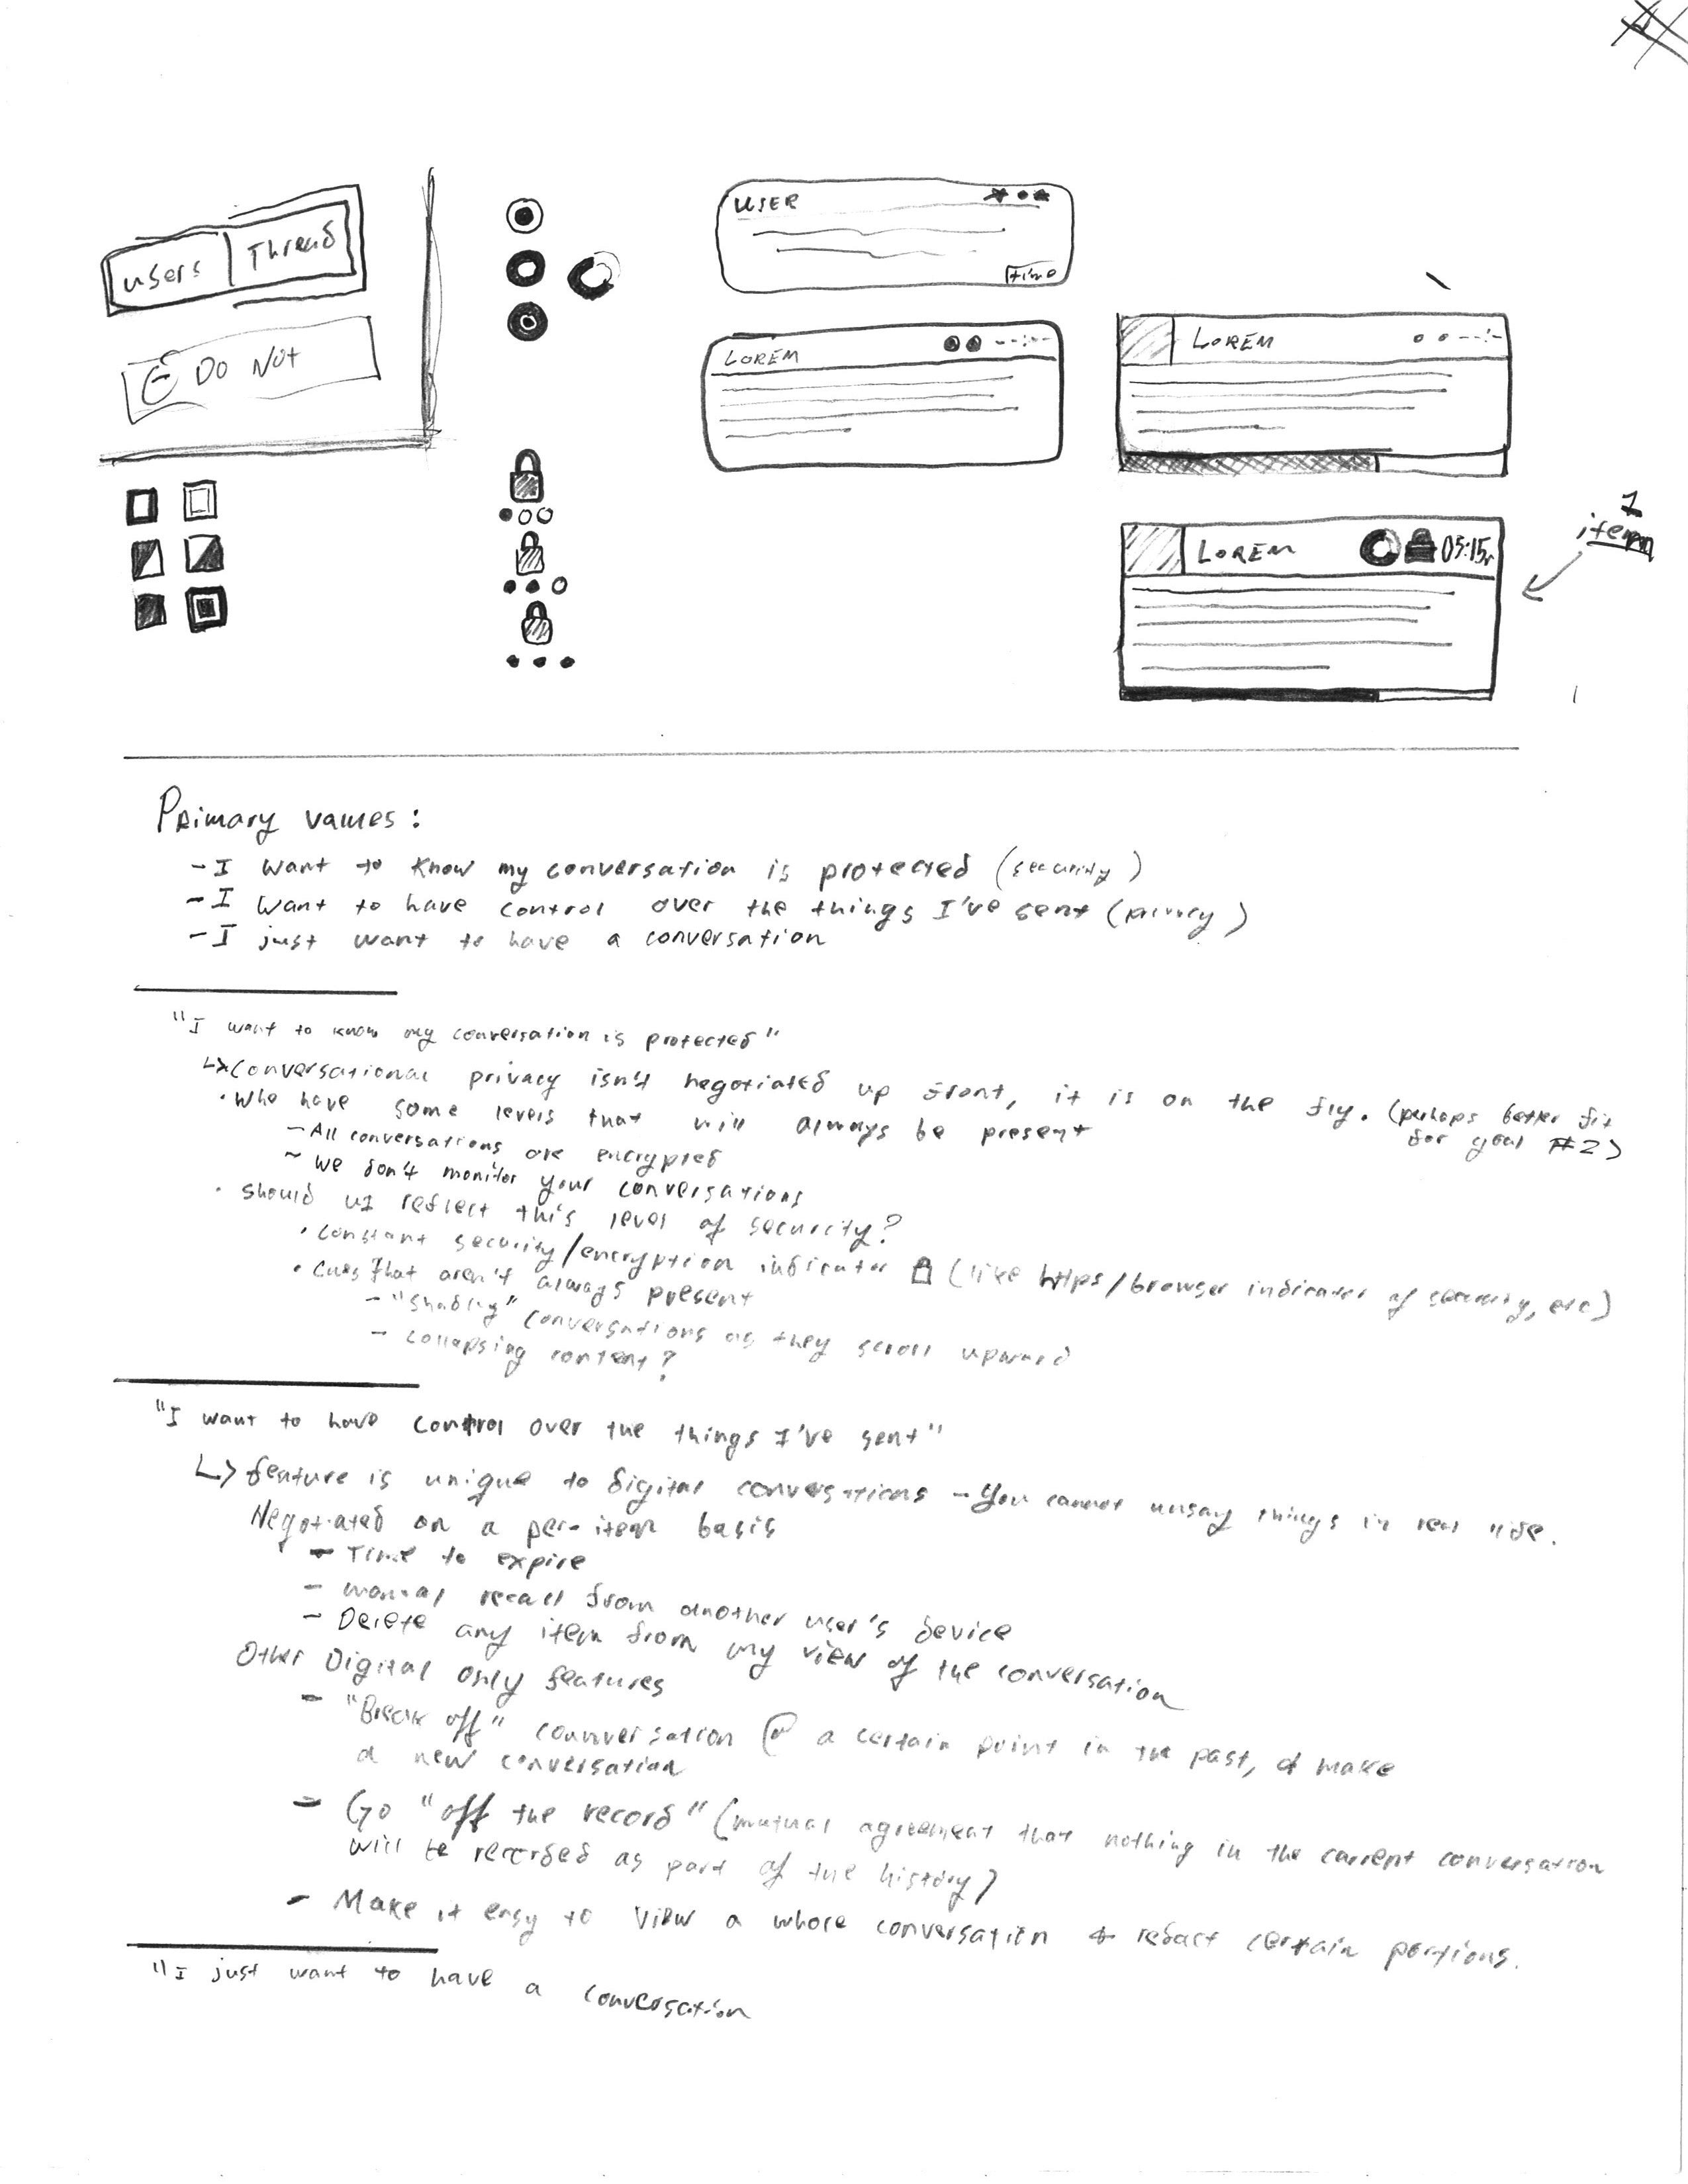 Users Thread
Do Not
USER
time
LOREM
LOREM
1
item
LOREM 05:15
Primary values:
- I want to know my conversation is protected (security)
- I want to have control over the things I've sent (privacy)
- I just want to have a conversation
"I want to know my conversation is protected"
↳ Conversational privacy isn't negotiated up front, it is on the fly. (perhaps better fit
for goal #2)
• Who have some levels that will always be present
- All conversations are encrypted
- We don't monitor your conversations
• Should UI reflect this level of security?
• Constant security/encryption indicator (like https/browser indicator of security, etc)
• Cues that aren't always present
- "Shading" conversations as they scroll upward
- Collapsing content?
"I want to have control over the things I've sent"
↳ feature is unique to digital conversations - You cannot unsay things in real life.
Negotiated on a per-item basis
- Time to expire
- Manual recall from another user's device
- Delete any item from my view of the conversation
Other Digital only features
- "Break off" conversation @ a certain point in the past, & make
a new conversation
- Go "off the record" (mutual agreement that nothing in the current conversation
will be recorded as part of the history)
- Make it easy to view a whole conversation & redact certain portions.
"I just want to have a conversation